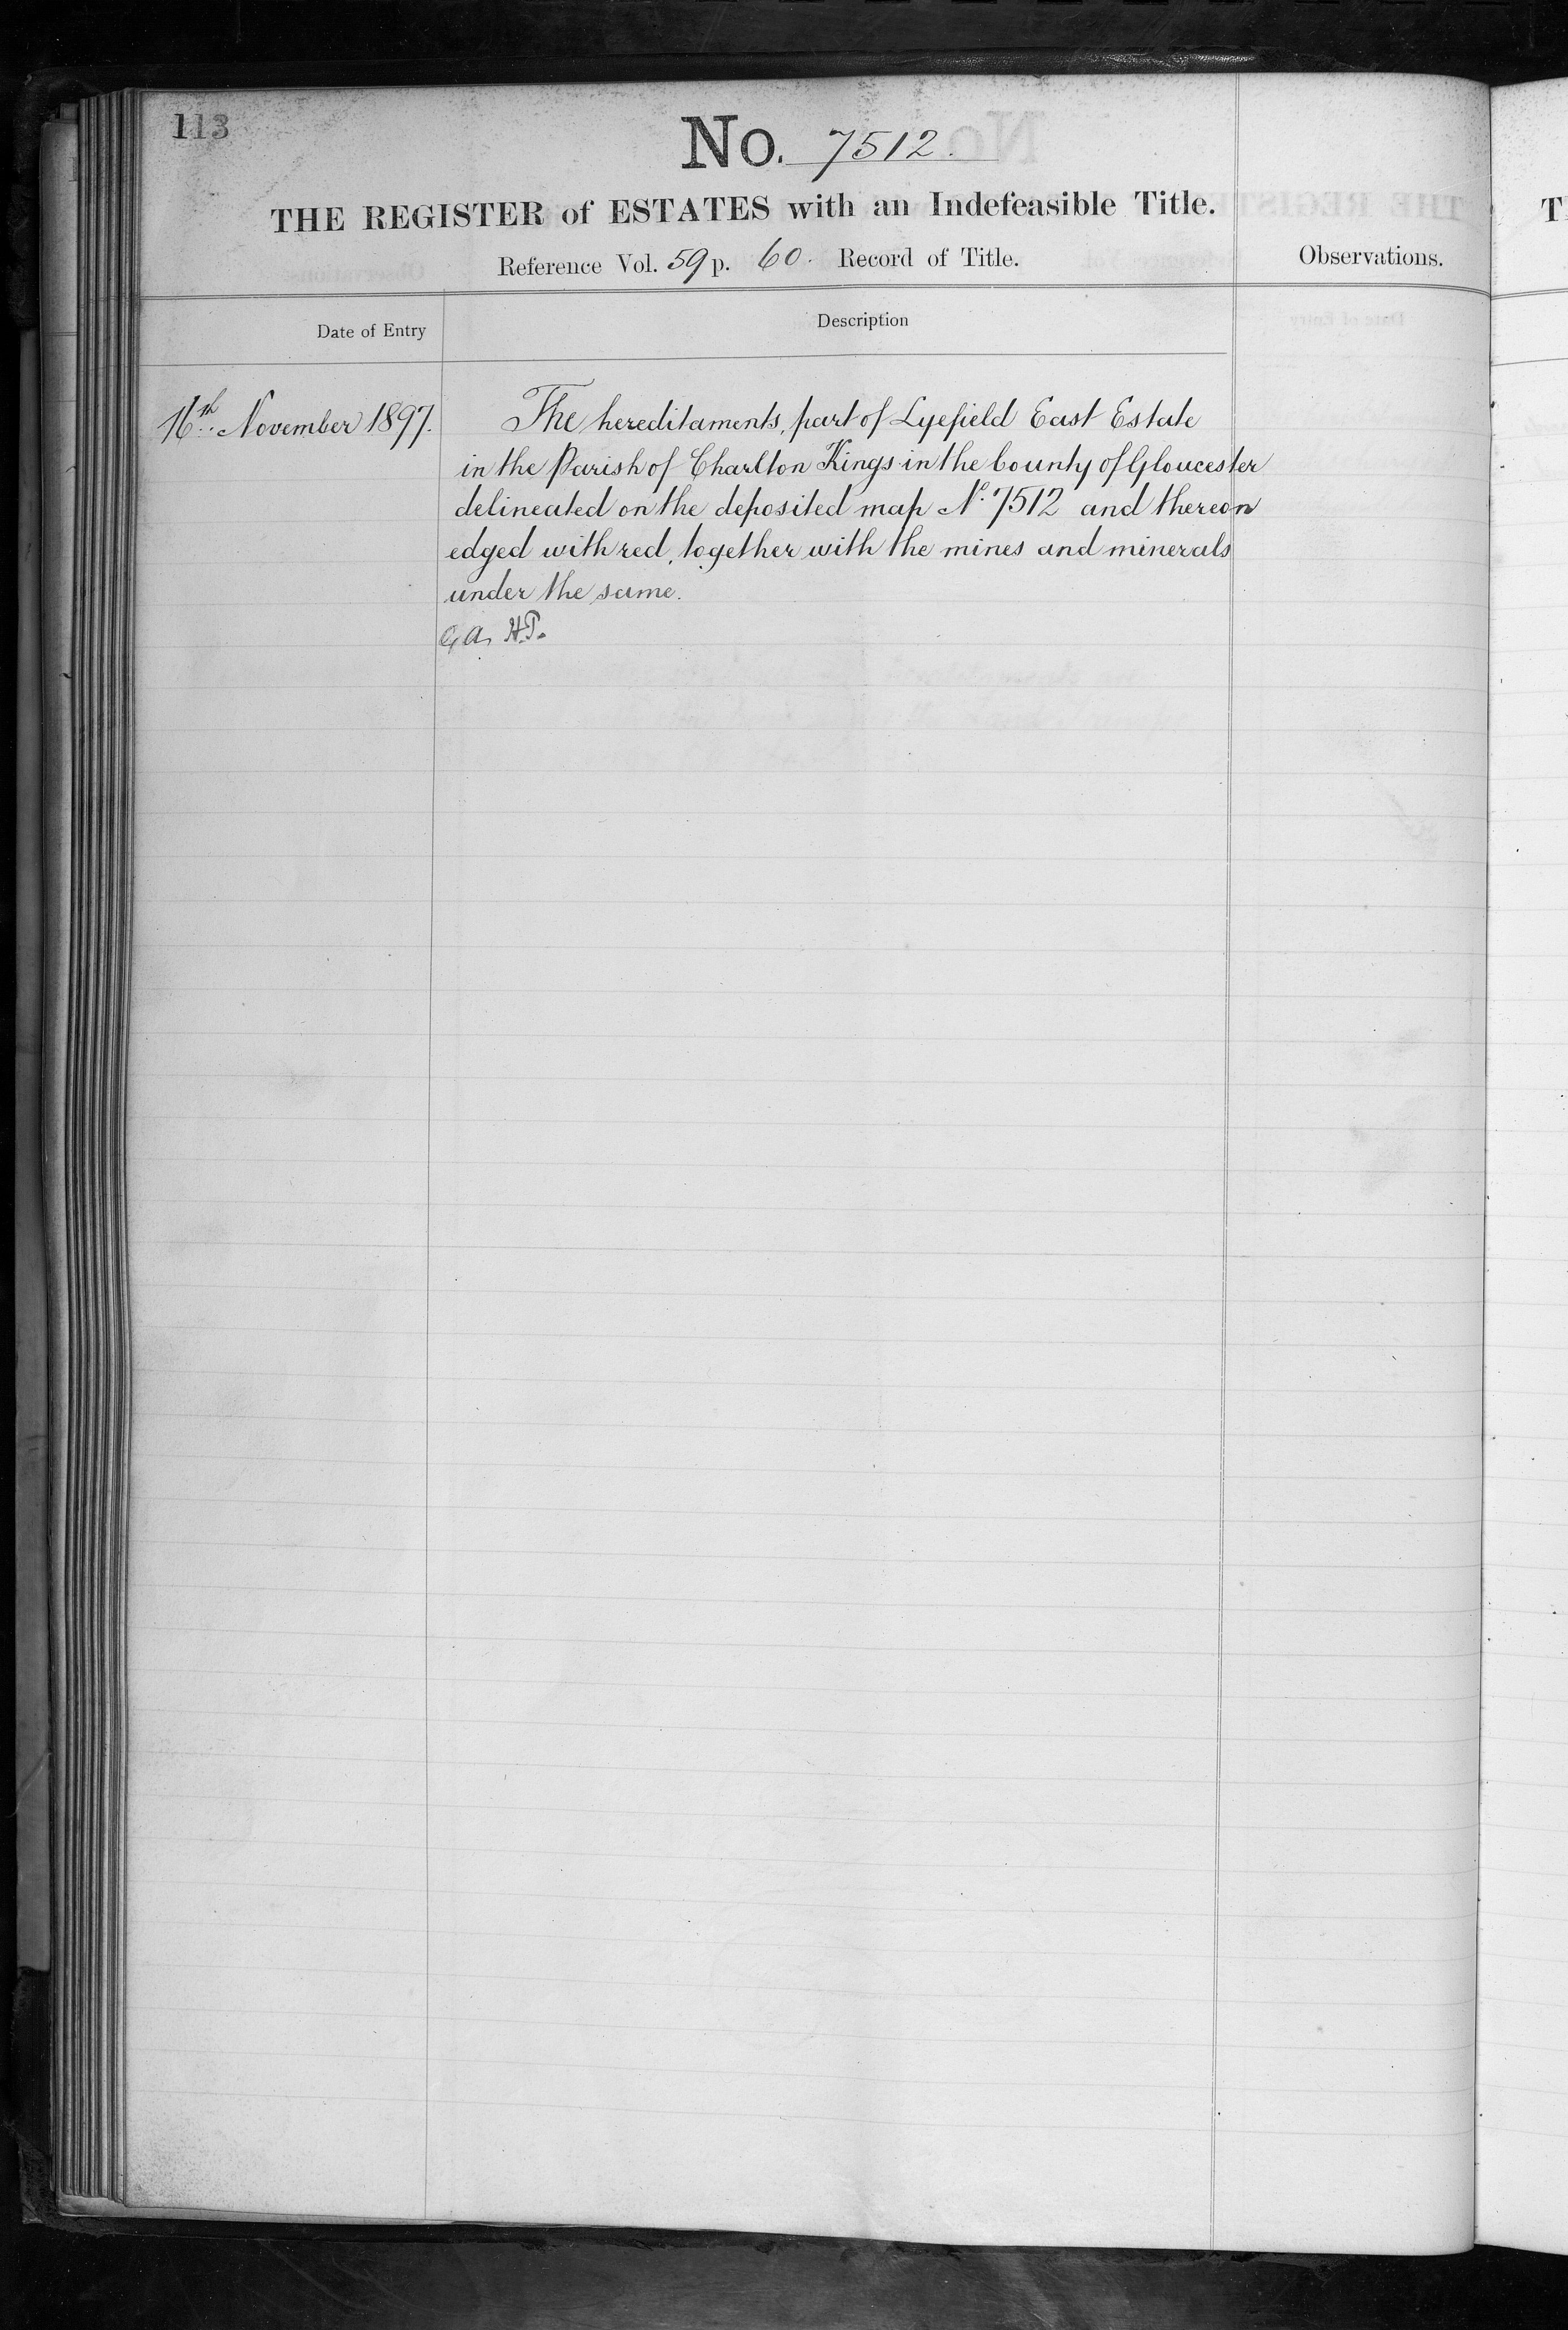 113
No. 7512.
THE REGISTER of ESTATES with an Indefeasible Title.
Reference Vol. 59 p. 60. Record of Title.
Observations.
Date of Entry
Description
16th November 1897.
The hereditaments, part of Lyefield East Estate
in the Parish of Charlton Kings in the County of Gloucester
delineated on the deposited map No. 7512 and thereon
edged with red, together with the mines and minerals
under the same.
H.P.